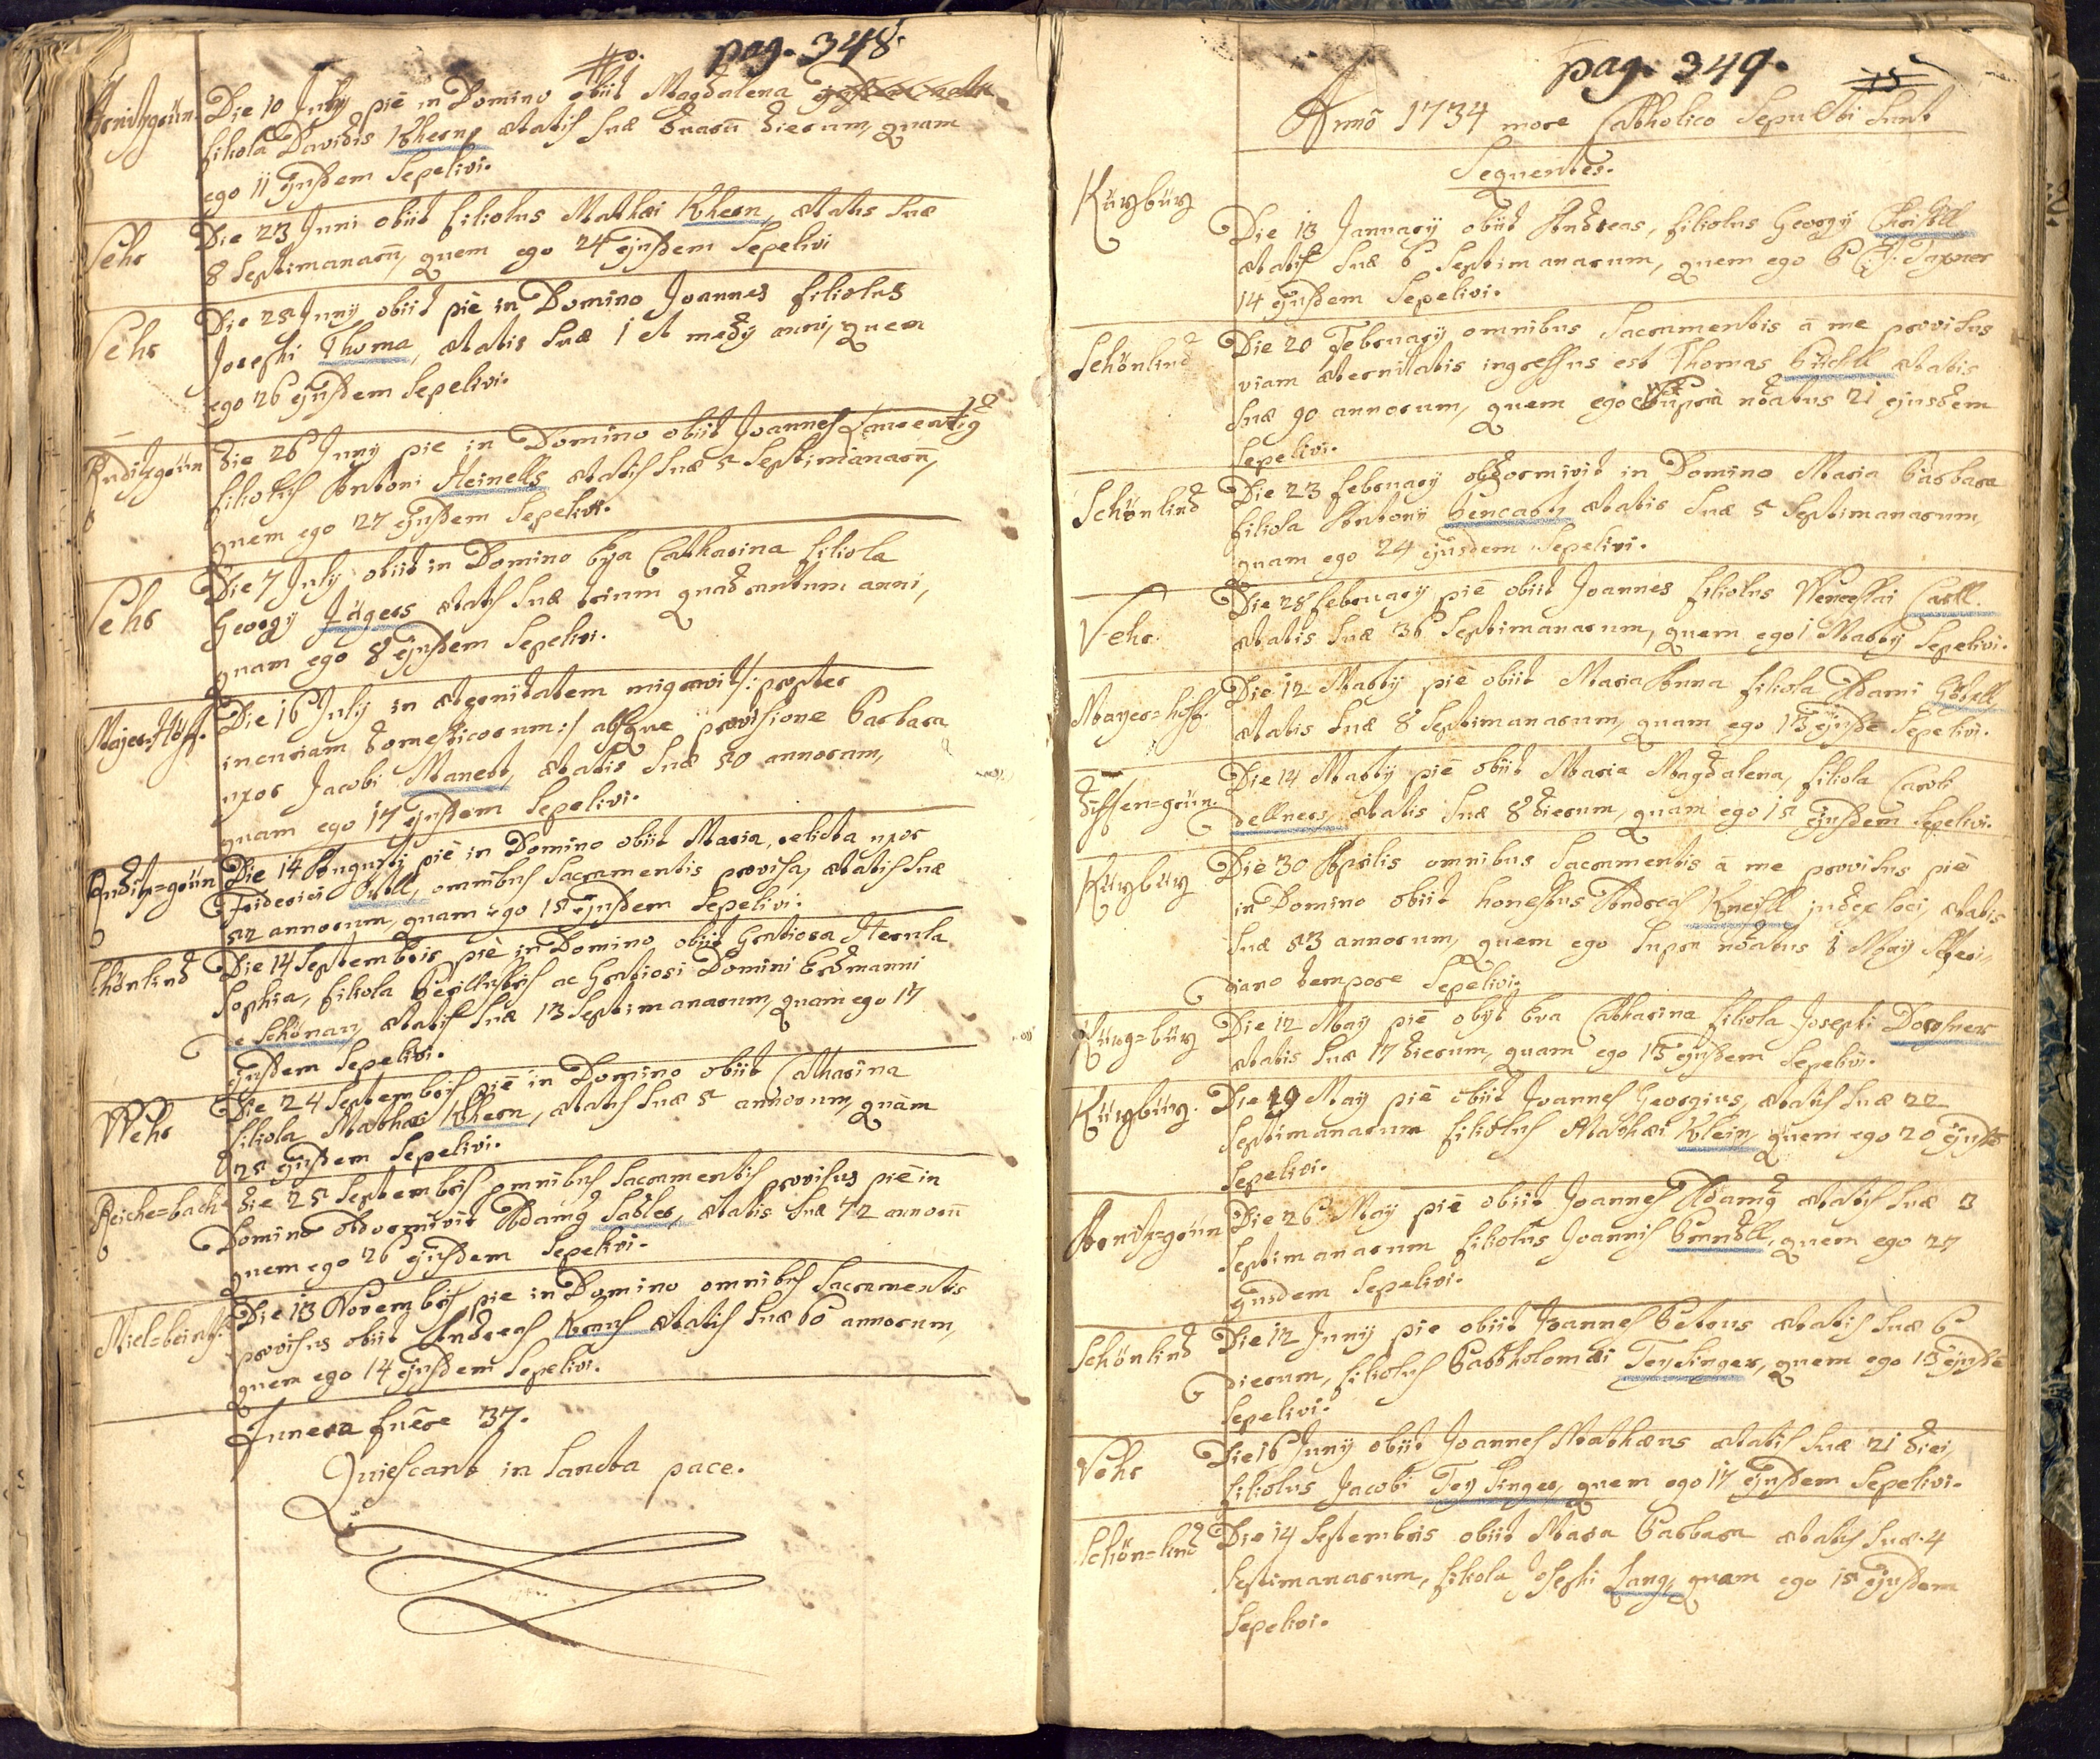 pag. 348.
Die 10 July piē in Domino obiit Magdalena
filiola Davidis Khern, ætatis suæ duarū dierum, quam
ego 11 ejusdem Sepelivi.
Vehr
Die 23 Juni obiit filiolus Mathæi Khern, ætatis suæ
8 Septimanarū, quem ego 24 ejusdem Sepelivi
Vehr
Die 25 Juny obiit piè in Domino Joannes filiolus
Josephi Thoma, ætatis suæ 1 et medÿ anni, quem
ego 26 ejusdem Sepelivi.
Rnditzgrün
die 26 Juny pie in Domino obiit Joannes
filiolus Antoni Heinells ætatis suæ 5 Septimanarū,
quem ego 27 ejusdem Sepelivi.
Vehr
Die 7 July obiit in Domino Eva Catharina filiola
Georgÿ Jägers ætatis suæ trium quadrantum anni,
quam ego 8 ejusdem Sepelivi.
Majer-Höff.
Die 16 July in æternitatem migravit /: propter
incuriam domesticorum :/ absque provisione Barbara
uxor Jacobi Manert, ætatis suæ 50 annorum,
quam ego 17 ejusdem Sepelivi.
Die 14 Augusti piè in Domino obiit Maria, relicta uxor
Friderici omnibus Sacramentis provisa, ætatis suæ
52 annorum, quam ego 15 ejusdem Sepelivi.
Schönlind
Die 14 Septembris piè in Domino obiit Gratiosa Sternla
Sophia, filiola Perillustris ac Gratiosi Domini Erdmanni
e Schönau ætatis suæ 13 Septimanarum, quam ego 17
ejusdem Sepelivi.
Wehr
Die 24 Septembris piē in Domino obiit Catharina
filiola Mathæi Khern, ætatis suæ 5 annorum, quam
25 ejusdem Sepelivi.
Reiche=bach
die 25 Septembris omnibus Sacramentis provisus piē in
Domino obdormivit Adamg Sabler, ætatis suæ 72 annorū
quem ego 26 ejusdem Sepelivi.
Die 13 Novembris pie in Domino omnibus Sacramentis
provisus obiit Andreas Kraus ætatis suæ 60 annorum,
quem ego 14 ejusdem Sepelivi.
Funera fuēre 37.
Quiescant in Sancta pace.
pag. 349.
15
Annō 1734 more Catholico Sepulti sunt
Sequentes.
Kürgbürg
Die 13 January obiit Andreas, filiolus Georgÿ
ætatis suæ 6 Septimanarum, quem ego
14 ejusdem Sepelivi.
Schönlind
Die 20 February omnibus Sacramentis â me provisus
viam æternitatis ingressus est Thomas Büchtl ætatis
suæ 90 annorum, quem ego ut suprà nōatus 21 ejusdem
Sepelivi.
Schönlind
Die 23 february obdormivit in Domino Maria Barbara
filiola Antony Pencart, ætatis suæ 5 Septimanarum,
quam ego 24 ejusdem Sepelivi.
Vehr.
Die 28 february piē obiit Joannes filiolus Wenceslai Carll
ætatis suæ 36 Septimanarum, quem ego 1 Marty Sepelivi.
Mayer=hoff.
Die 12 Marty piē obiit Maria Anna filiola Adami Göbell,
ætatis suæ 8 Septimanarum, quam ego 13 ejusdē Sepelivi.
Die 14 Marty piē obiit Maria Magdalena, filiola Caroli
dellners, ætatis suæ 8 dierum, quam ego 15 ejusdem Sepelivi.
Kürgbürg
Die 30 Aprilis omnibus Sacramentis â me provisus piē
in Domino obiit honestus Andreas Kneissl judex loci, ætatis
suæ 53 annorum, quem ego supra nōatus 3 May
diano tempore Sepelivi.
Kürg=bürg
Die 12 May piē obÿt Eva Catharina filiola Josephi Dorschner
ætatis suæ 17 dierum, quam ego 13 ejusdem Sepelivi.
Kürgbürg.
Die 19 May piē obiit Joannes Georgius, ætatis suæ 22
Septimanarum filiolus Mathæi Klein, quem ego 20 ejusdē
Sepelivi.
Arnitz=grün
Die 26 May piē obiit Joannes Adamg ætatis suæ 3
Septimanarum filiolus Joannis quem ego 27
ejusdem Sepelivi.
Schönlind
Die 12 Juny pie obiit Joannes Petrus ætatis suæ 6
dierum, filiolus Bartholomæi Teysinger, quem ego 13 ejusdē
Sepelivi.
Vehr
Die 16 Juny obiit Joannes Mathæus ætatis suæ 21 diei,
filiolus Jacobi Teysinger, quem ego 17 ejusdem Sepelivi.
Schön=lind
Die 14 Septembris obiit Mara Barbara ætatis suæ 4
Septimanarum, filiola Josephi Lang, quam ego 15 ejusdem
Sepelivi.